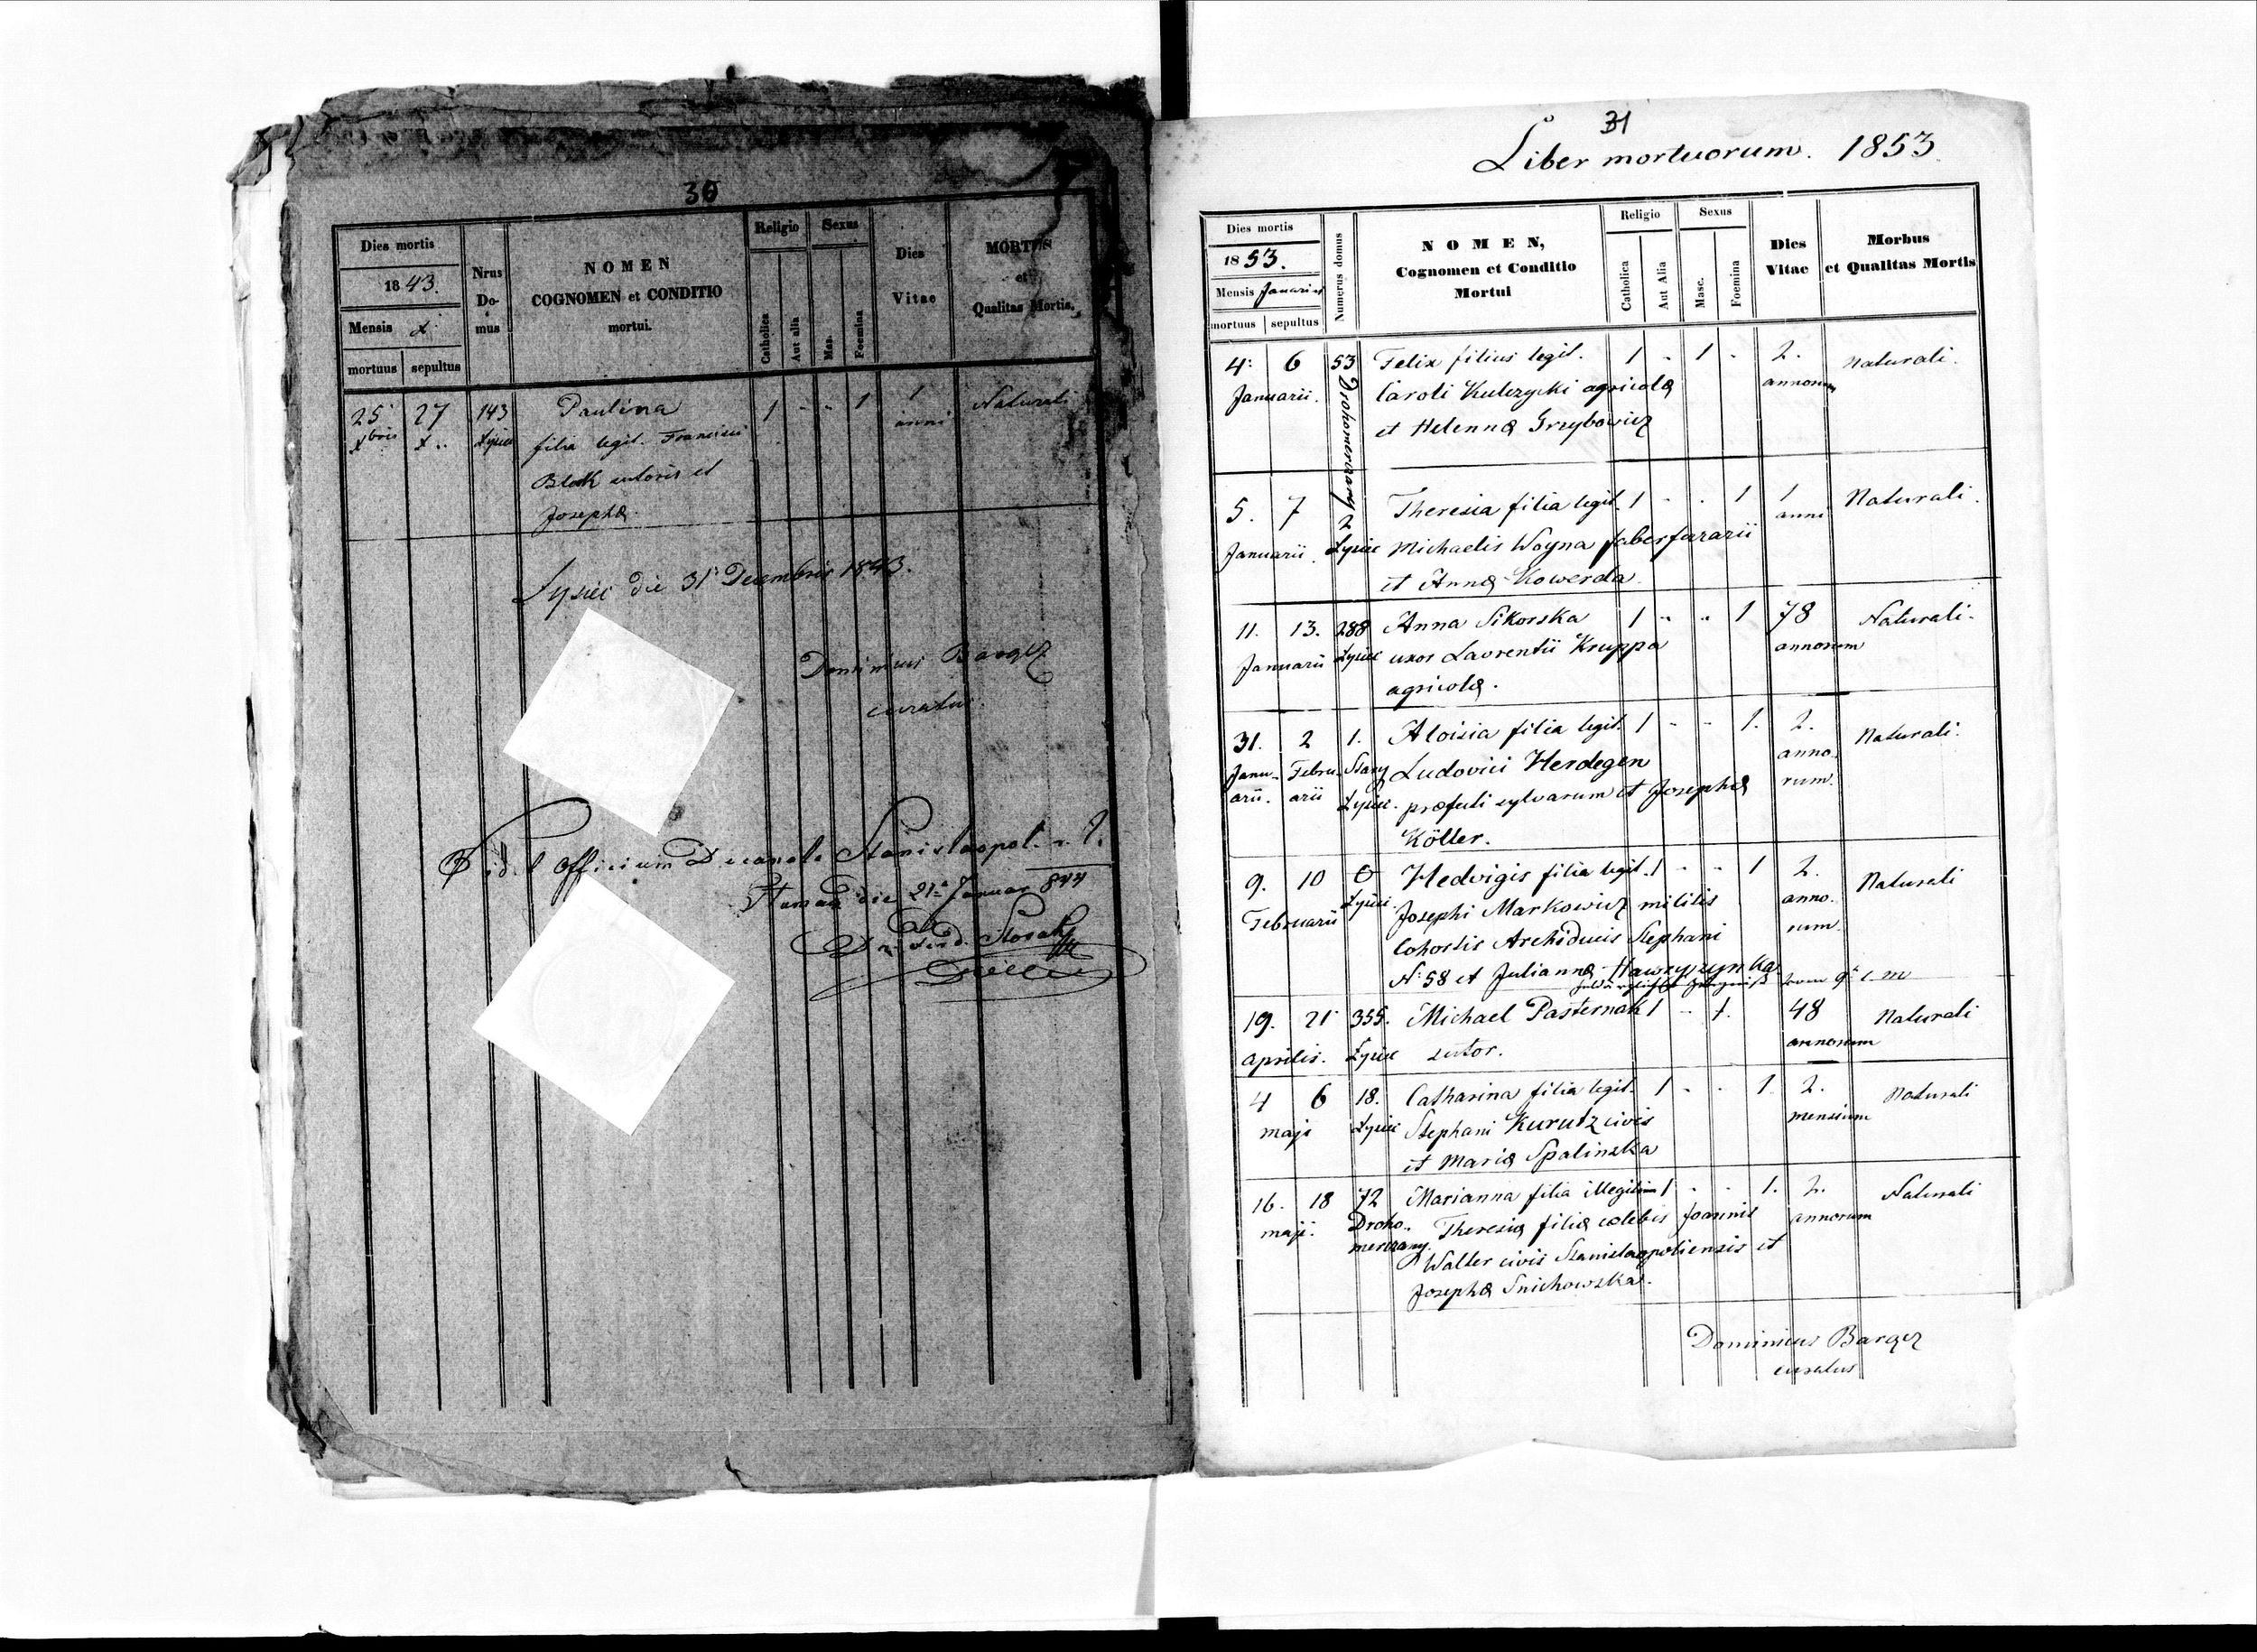 30
Dies mortis
1843.
Mensis X
mortuus sepultus
Nrus Domus
NOMEN
COGNOMEN et CONDITIO
mortui.
Religio
Catholica
Aut alia
Sexus
Mas.
Foemina
Dies
Vitae
MORTUS
et
Qualitas Mortis.
25 27 143 Paulina 1 - - 1 1 Naturali
Xbris X.. Łysiec filia legit. Francisci anni
Blok sutoris et
Josephæ.
Lysiec die 31 Decembris 1843.
Dominicus Barącz
curatus.
Officium Decanale Stanislaopol. r. l.
die 21 Januar 844
31
Liber mortuorum. 1853.
Dies mortis
1853.
Mensis Januarius
mortuus sepultus
Numerus domus
NOMEN,
Cognomen et Conditio
Mortui
Religio
Catholica
Aut Alia
Sexus
Masc.
Foemina
Dies
Vitae
Morbus
et Qualitas Mortis
4. 6 53 Felix filius legit. 1 - 1 - 2. Naturali.
Januarii. Drohomerczany Caroli Kulczycki agricolæ annorum
et Helennæ Grzybowicz
5. 7 2 Theresia filia legit. 1 - . 1 1 Naturali.
Januarii Łysiec Michaelis Woyna faberferrarii anni
et Annæ Kowerda
11. 13. 288 Anna Sikorska 1 - - 1 78 Naturali.
Januarii Łysiec uxor Laurentii Kruppa annorum
agricolæ.
31. 2 1. Aloisia filia legit. 1 - - 1. 2. Naturali.
Janu- Febru- Stary Ludovici Herdegen anno-
arii. arii Łysiec. præfecti sylvarum et Josephæ rum.
Köller.
9. 10 Hedvigis filia legit. 1 - - 1 2. Naturali
Februarii Łysiec. Josephi Markowicz militis anno-
Cohortis Archiducis Stephani rum.
N. 58 et Juliannæ Hawryszynka
19. 21 355. Michael Pasternak 1 - 1. 48 Naturali
Aprilis. Łysiec sutor. annorum
4 6 18. Catharina filia legit. 1 - - 1 2. Naturali
maji Łysiec Stephani Kurutz civis mensium
et Mariæ Spalinska
16. 18 72 Marianna filia illegitim 1 - - 1. 2. Naturali
maji. Droho- Theresiæ filiæ cælebis Joannis annorum
merczany. Walter civis Stanislaopoliensis et
Josephæ Snichowska.
Dominicus Barącz
curatus